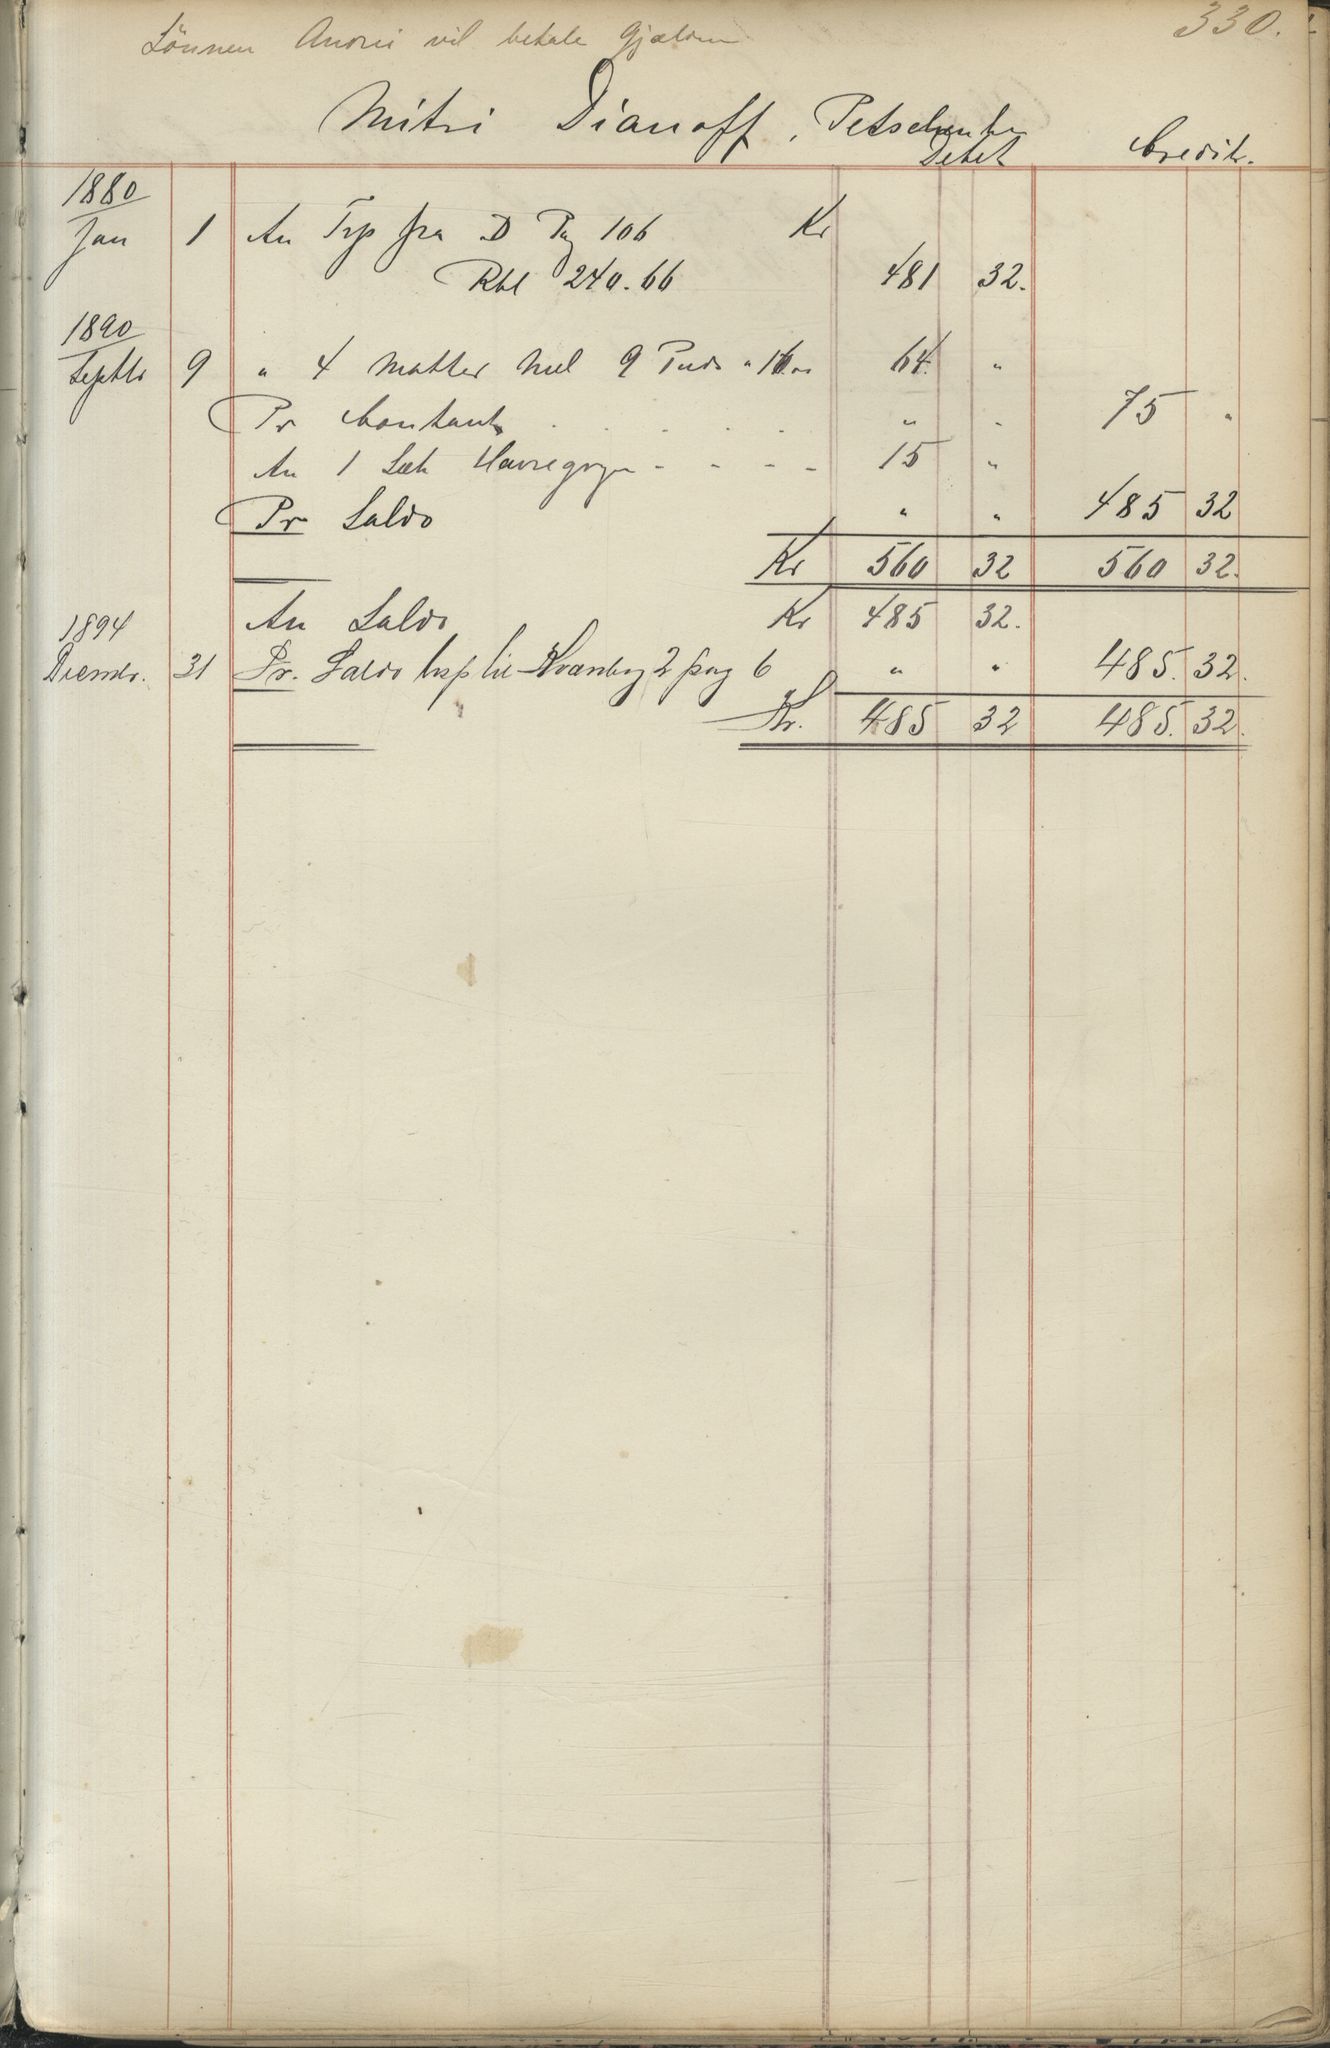 330.
Sönnen Andrei vil betale Gjælden
Mitri Dianoff, Petschenka
Debet Credit.
1880
Jan 1 An Trp fra D Pag 106 Kr
Rbl 240.66 481 32.
1890
Septbr 9 " 4 Matter Mel 9 Puds " 16 64. "
Pr Contant . . . . . " " 75 "
An 1 Sæk Havregryn - - - - 15 "
Pr Saldo " " 485 32
Kr 560 32 560 32.
An Saldo Kr 485 32.
1894
Decmbr. 31 Pr. Saldo trsp til Kvænbog 2 pag 6 " " 485. 32.
Kr. 485 32 485. 32.